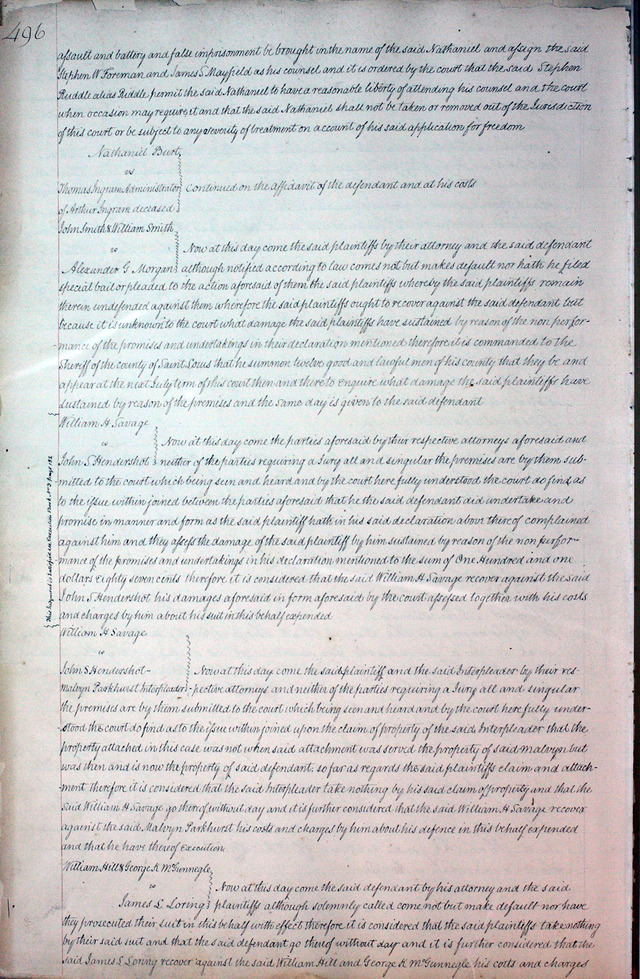 496
assault and battery and false imprisonment be brought in the name of the said Nathaniel and assign the said
Stephen W Foreman and James S Mayfield as his counsel and it is ordered by the court that the said Stephen
Ruddle alias Riddle permit the said Nathaniel to have a reasonable liberty of attending his counsel and the court
when occasion may require it and that the said Nathaniel shall not be taken or removed out of the Jurisdiction
of this court or be subject to any severity of treatment on account of his said application for freedom
Nathaniel Burt
vs
Thomas Ingram Administrator Continued on the affidavit of the defendant and at his costs
of Arthur Ingram deceased
John Smith & William Smith
vs Now at this day come the said plaintiffs by their attorney and the said defendant
Alexander G Morgan although notified according to law comes not but makes default nor hath he filed
special bail or pleaded to the action aforesaid of them the said plaintiffs whereby the said plaintiffs remain
therein undefended against them wherefore the said plaintiffs ought to recover against the said defendant but
because it is unknown to the court what damage the said plaintiffs have sustained by reason of the non perfor-
mance of the promises and undertakings in their declaration mentioned therefore it is commanded to the
Sheriff of the county of Saint Louis that he summon twelve good and lawful men of his county that they be and
appear at the next July term of this court then and there to enquire what damage the said plaintiffs have
sustained by reason of the premises and the same day is given to the said defendant
William H Savage
vs Now at this day come the parties aforesaid by their respective attorneys aforesaid and
John S Hendershot neither of the parties requiring a Jury all and singular the premises are by them sub-
mitted to the court which being seen and heard and by the court here fully understood the court do find as
to the issue within joined between the parties aforesaid that he the said defendant did undertake and
promise in manner and form as the said plaintiff hath in his said declaration above thereof complained
against him and they assess the damage of the said plaintiff by him sustained by reason of the non perfor-
mance of the promises and undertakings in his declaration mentioned to the sum of One Hundred and one
dollars eighty seven cents therefore it is considered that the said William H Savage recover against the said
John S Hendershot his damages aforesaid in form aforesaid by the court assessed together with his costs
and charges by him about his suit in this behalf expended
This Judgment is satisfied see Execution Book No 3 page 182
William H Savage
vs
John S Hendershot Now at this day come the said plaintiff and the said Interpleader by their res-
Malvyn Parkhurst Interpleader pective attorneys and neither of the parties requiring a Jury all and singular
the premises are by them submitted to the court which being seen and heard and by the court here fully under-
stood the court do find as to the issue within joined upon the claim of property of the said Interpleader that the
property attached in this case was not when said attachment was served the property of said Malvyn but
was then and is now the property of said defendant so far as regards the said plaintiffs claim and attach-
ment therefore it is considered that the said Interpleader take nothing by his said claim of property and that the
said William H Savage go thereof without day and it is further considered that the said William H Savage recover
against the said Malvyn Parkhurst his costs and charges by him about his defence in this behalf expended
and that he have thereof execution
William Hill & George K McGunnegle
vs Now at this day come the said defendant by his attorney and the said
James L Loring plaintiffs although solemnly called come not but make default nor have
they prosecuted their suit in this behalf with effect therefore it is considered that the said plaintiffs take nothing
by their said suit and that the said defendant go thereof without day and it is further considered that the
said James L Loring recover against the said William Hill and George K McGunnegle his costs and charges